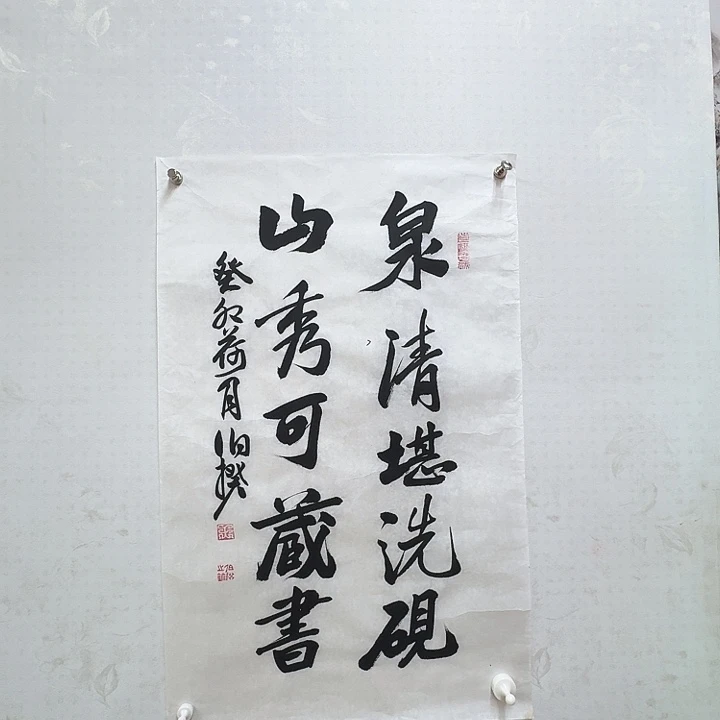 泉清堪洗硯
山秀可藏書
癸卯荷月伯揆